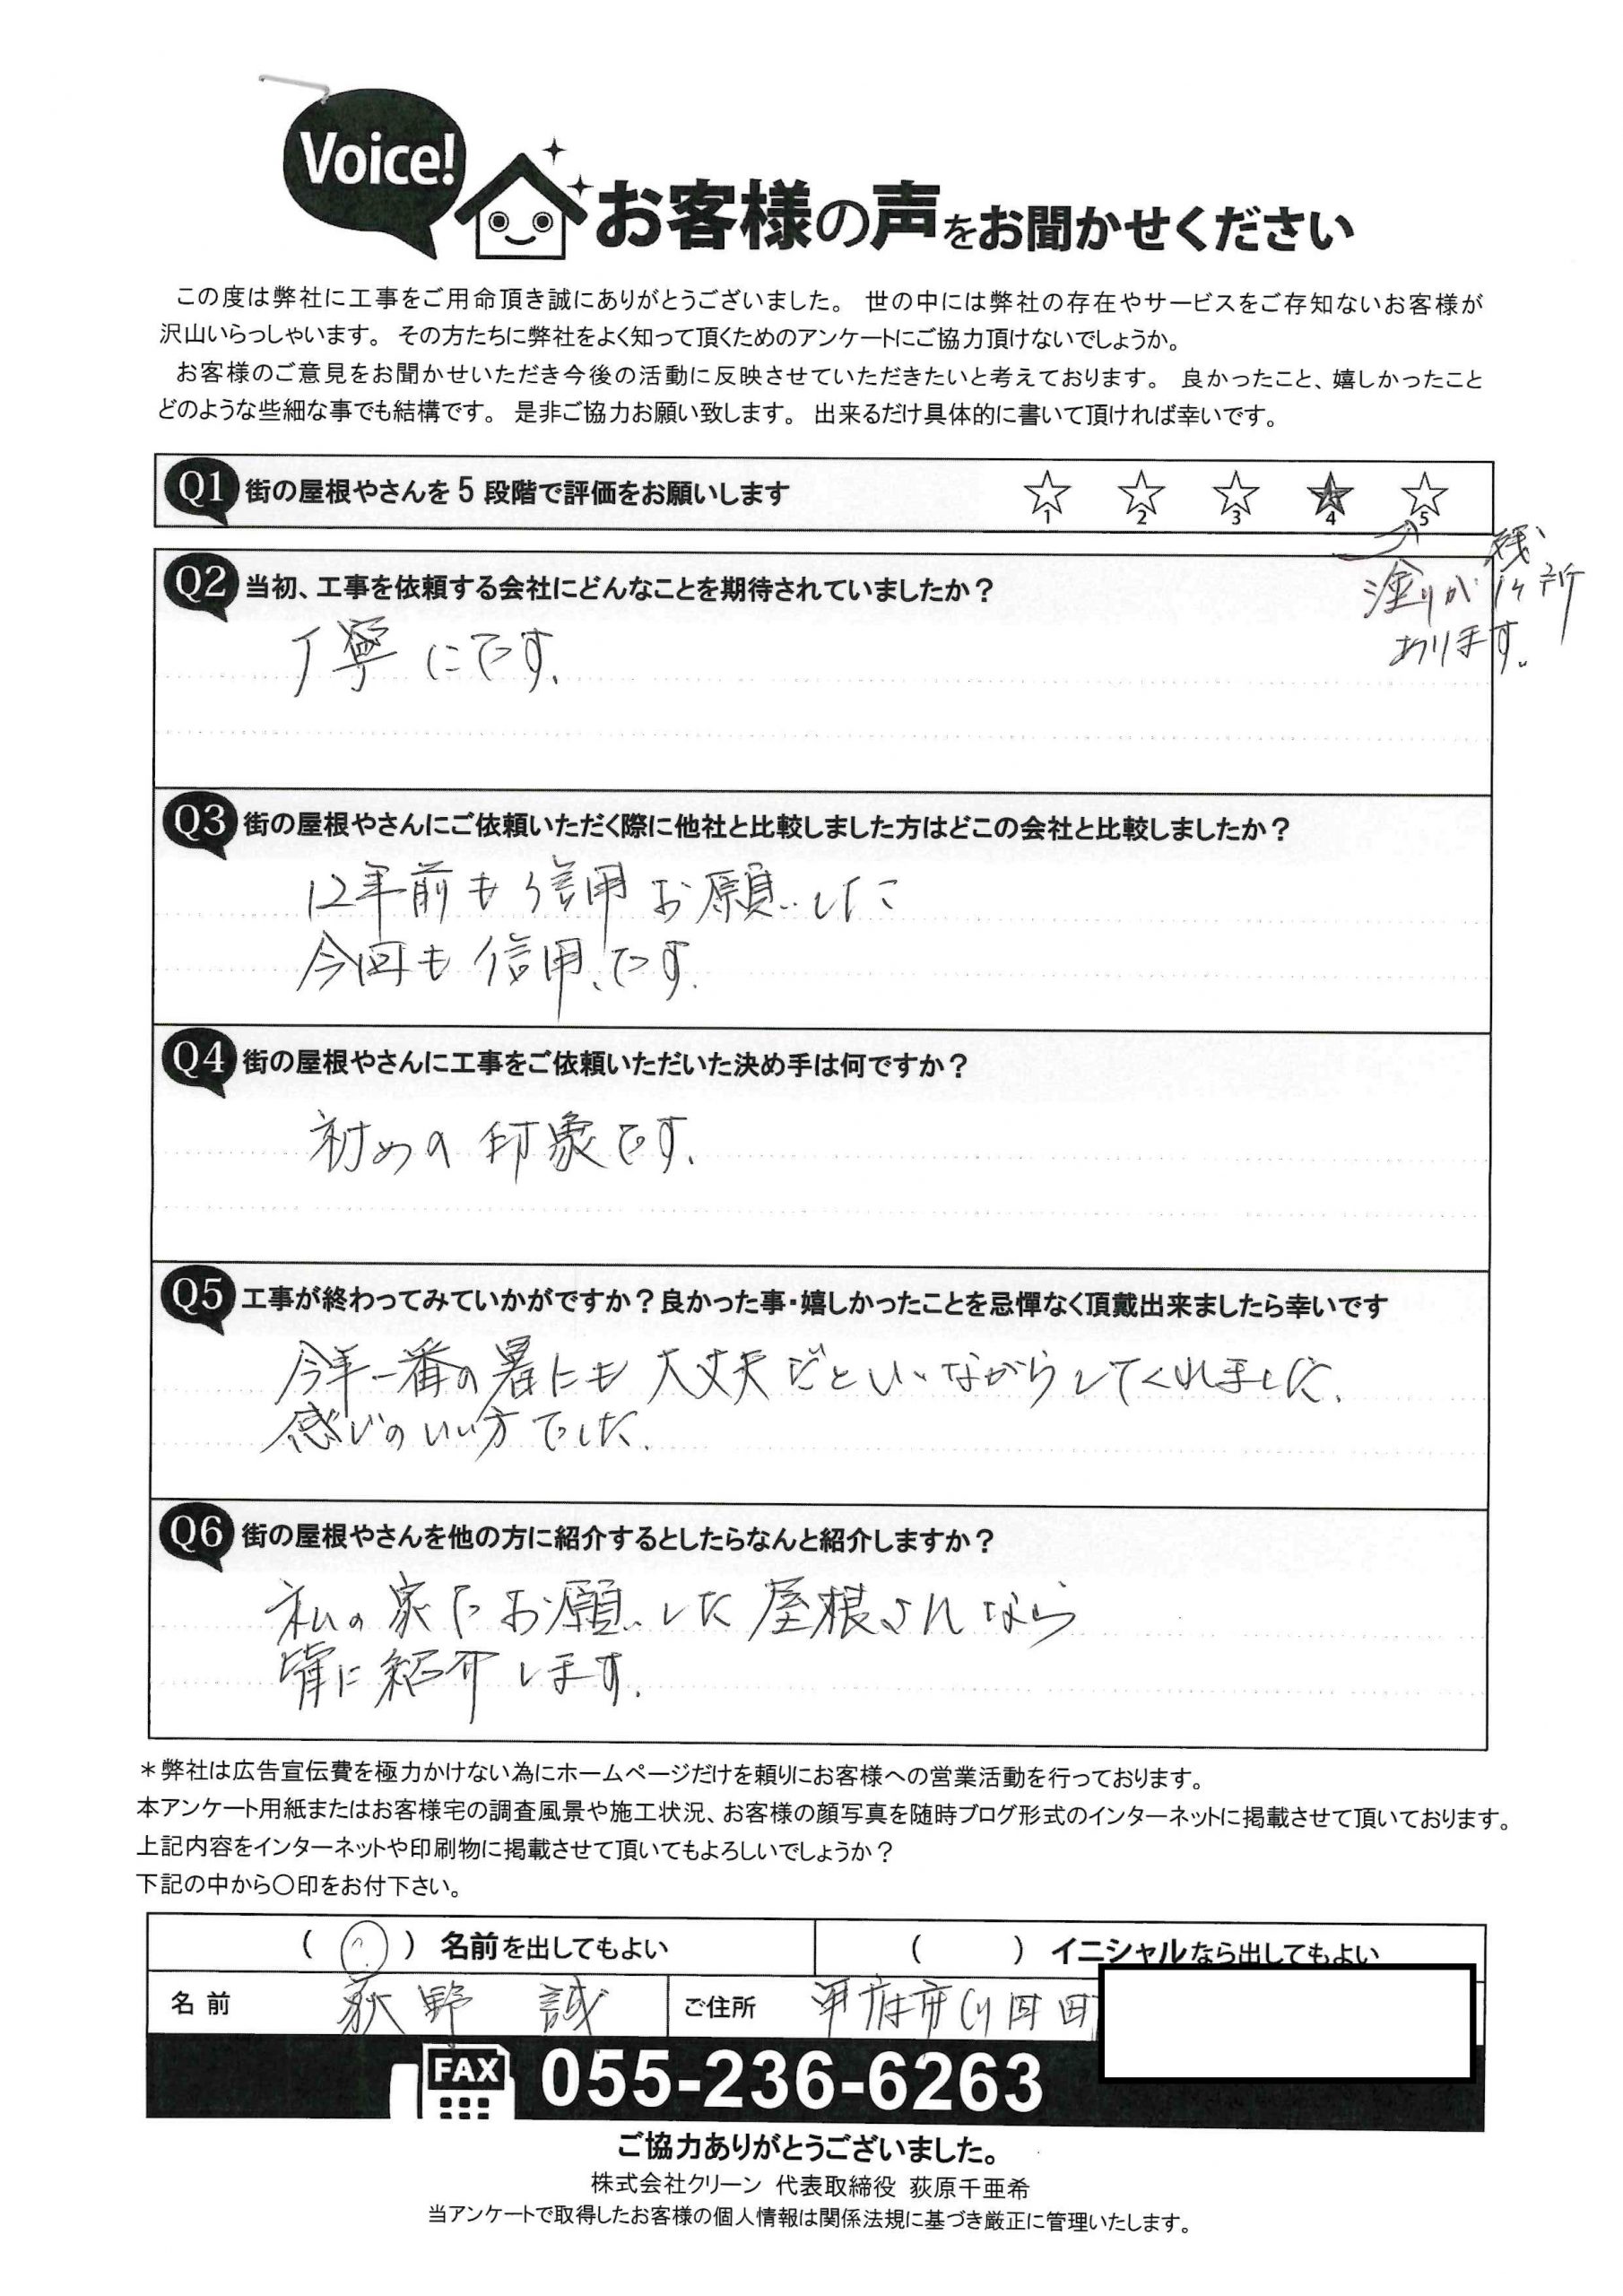 Voice!
お客様の声をお聞かせください
この度は弊社に工事をご用命頂き誠にありがとうございました。 世の中には弊社の存在やサービスをご存知ないお客様が
沢山いらっしゃいます。 その方たちに弊社をよく知って頂くためのアンケートにご協力頂けないでしょうか。
お客様のご意見をお聞かせいただき今後の活動に反映させていただきたいと考えております。 良かったこと、嬉しかったこと
どのような些細な事でも結構です。 是非ご協力お願い致します。 出来るだけ具体的に書いて頂ければ幸いです。
Q1 街の屋根やさんを5段階で評価をお願いします
1 2 3 4 5
残い
塗りが1ヶ所
あります。
Q2 当初、工事を依頼する会社にどんなことを期待されていましたか？
丁寧にです.
Q3 街の屋根やさんにご依頼いただく際に他社と比較しました方はどこの会社と比較しましたか？
12年前も信用お願いした
今回も信用、です.
Q4 街の屋根やさんに工事をご依頼いただいた決め手は何ですか？
初めの印象です.
Q5 工事が終わってみていかがですか？良かった事・嬉しかったことを忌憚なく頂戴出来ましたら幸いです
今年一番の暑にも大丈夫だといいながらしてくれました.
感じのいい方でした.
Q6 街の屋根やさんを他の方に紹介するとしたらなんと紹介しますか？
私の家でお願いした屋根さんなら
皆に紹介します.
＊弊社は広告宣伝費を極力かけない為にホームページだけを頼りにお客様への営業活動を行っております。
本アンケート用紙またはお客様宅の調査風景や施工状況、お客様の顔写真を随時ブログ形式のインターネットに掲載させて頂いております。
上記内容をインターネットや印刷物に掲載させて頂いてもよろしいでしょうか？
下記の中から〇印をお付下さい。
( ○ ) 名前を出してもよい ( ) イニシャルなら出してもよい
名前 荻野 誠 ご住所 甲府市
FAX 055-236-6263
ご協力ありがとうございました。
株式会社クリーン 代表取締役 荻原千亜希
当アンケートで取得したお客様の個人情報は関係法規に基づき厳正に管理いたします。